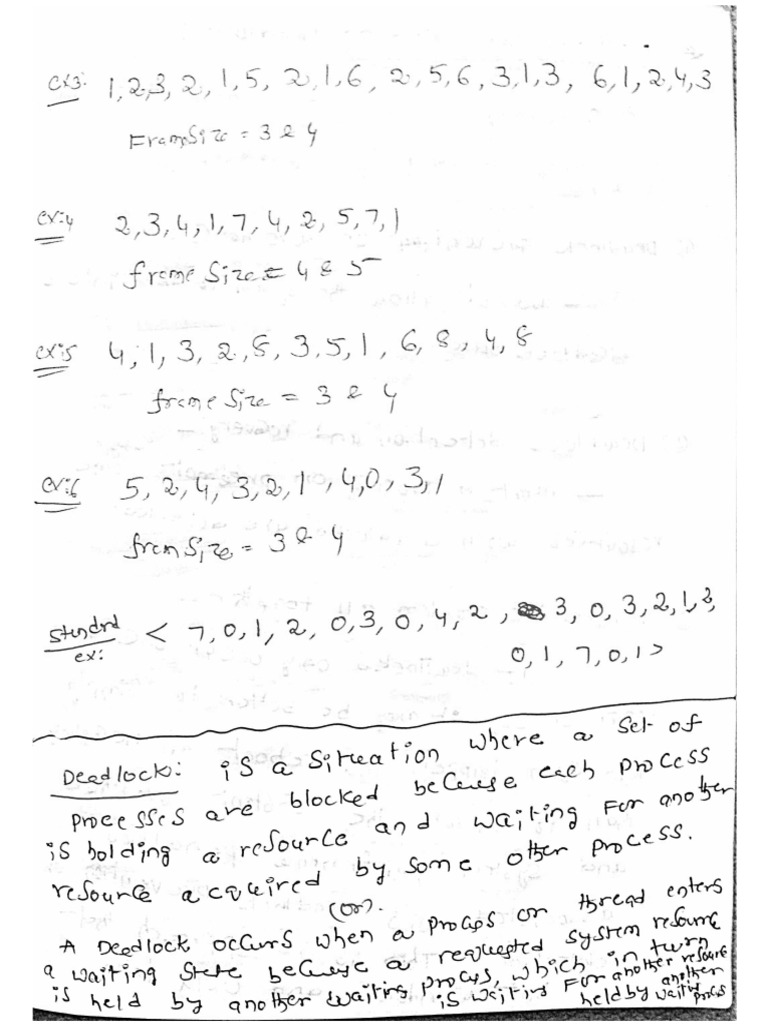 ex3: 1,2,3, 2, 1,5, 2,1,6, 2,5,6, 3,1,3, 6,1,2,4,3
FramSize = 3 & 4
ex:4 2,3,4,1,7,4,2,5,7,1
frame Size = 4 & 5
ex:5 4,1,3,2,5,3,5,1,6,8,4,8
frame Size = 3 & 4
ex:6 5,2,4,3,2,1,4,0,3,1
fremSize = 3 & 4
Standrd ex: < 7,0,1,2,0,3,0,4,2, 3,0,3,2,1,2,
0,1,7,0,1>
Deadlock: is a Situation where a Set of
processes are blocked because each process
is holding a resource and waiting For another
resource acquired by some other process.
(or).
A Deadlock occurs when a process or thread enters
a waiting State because a requested system resource
is held by another waiting process, which in turn
is waiting For another resource
held by another
waiting process